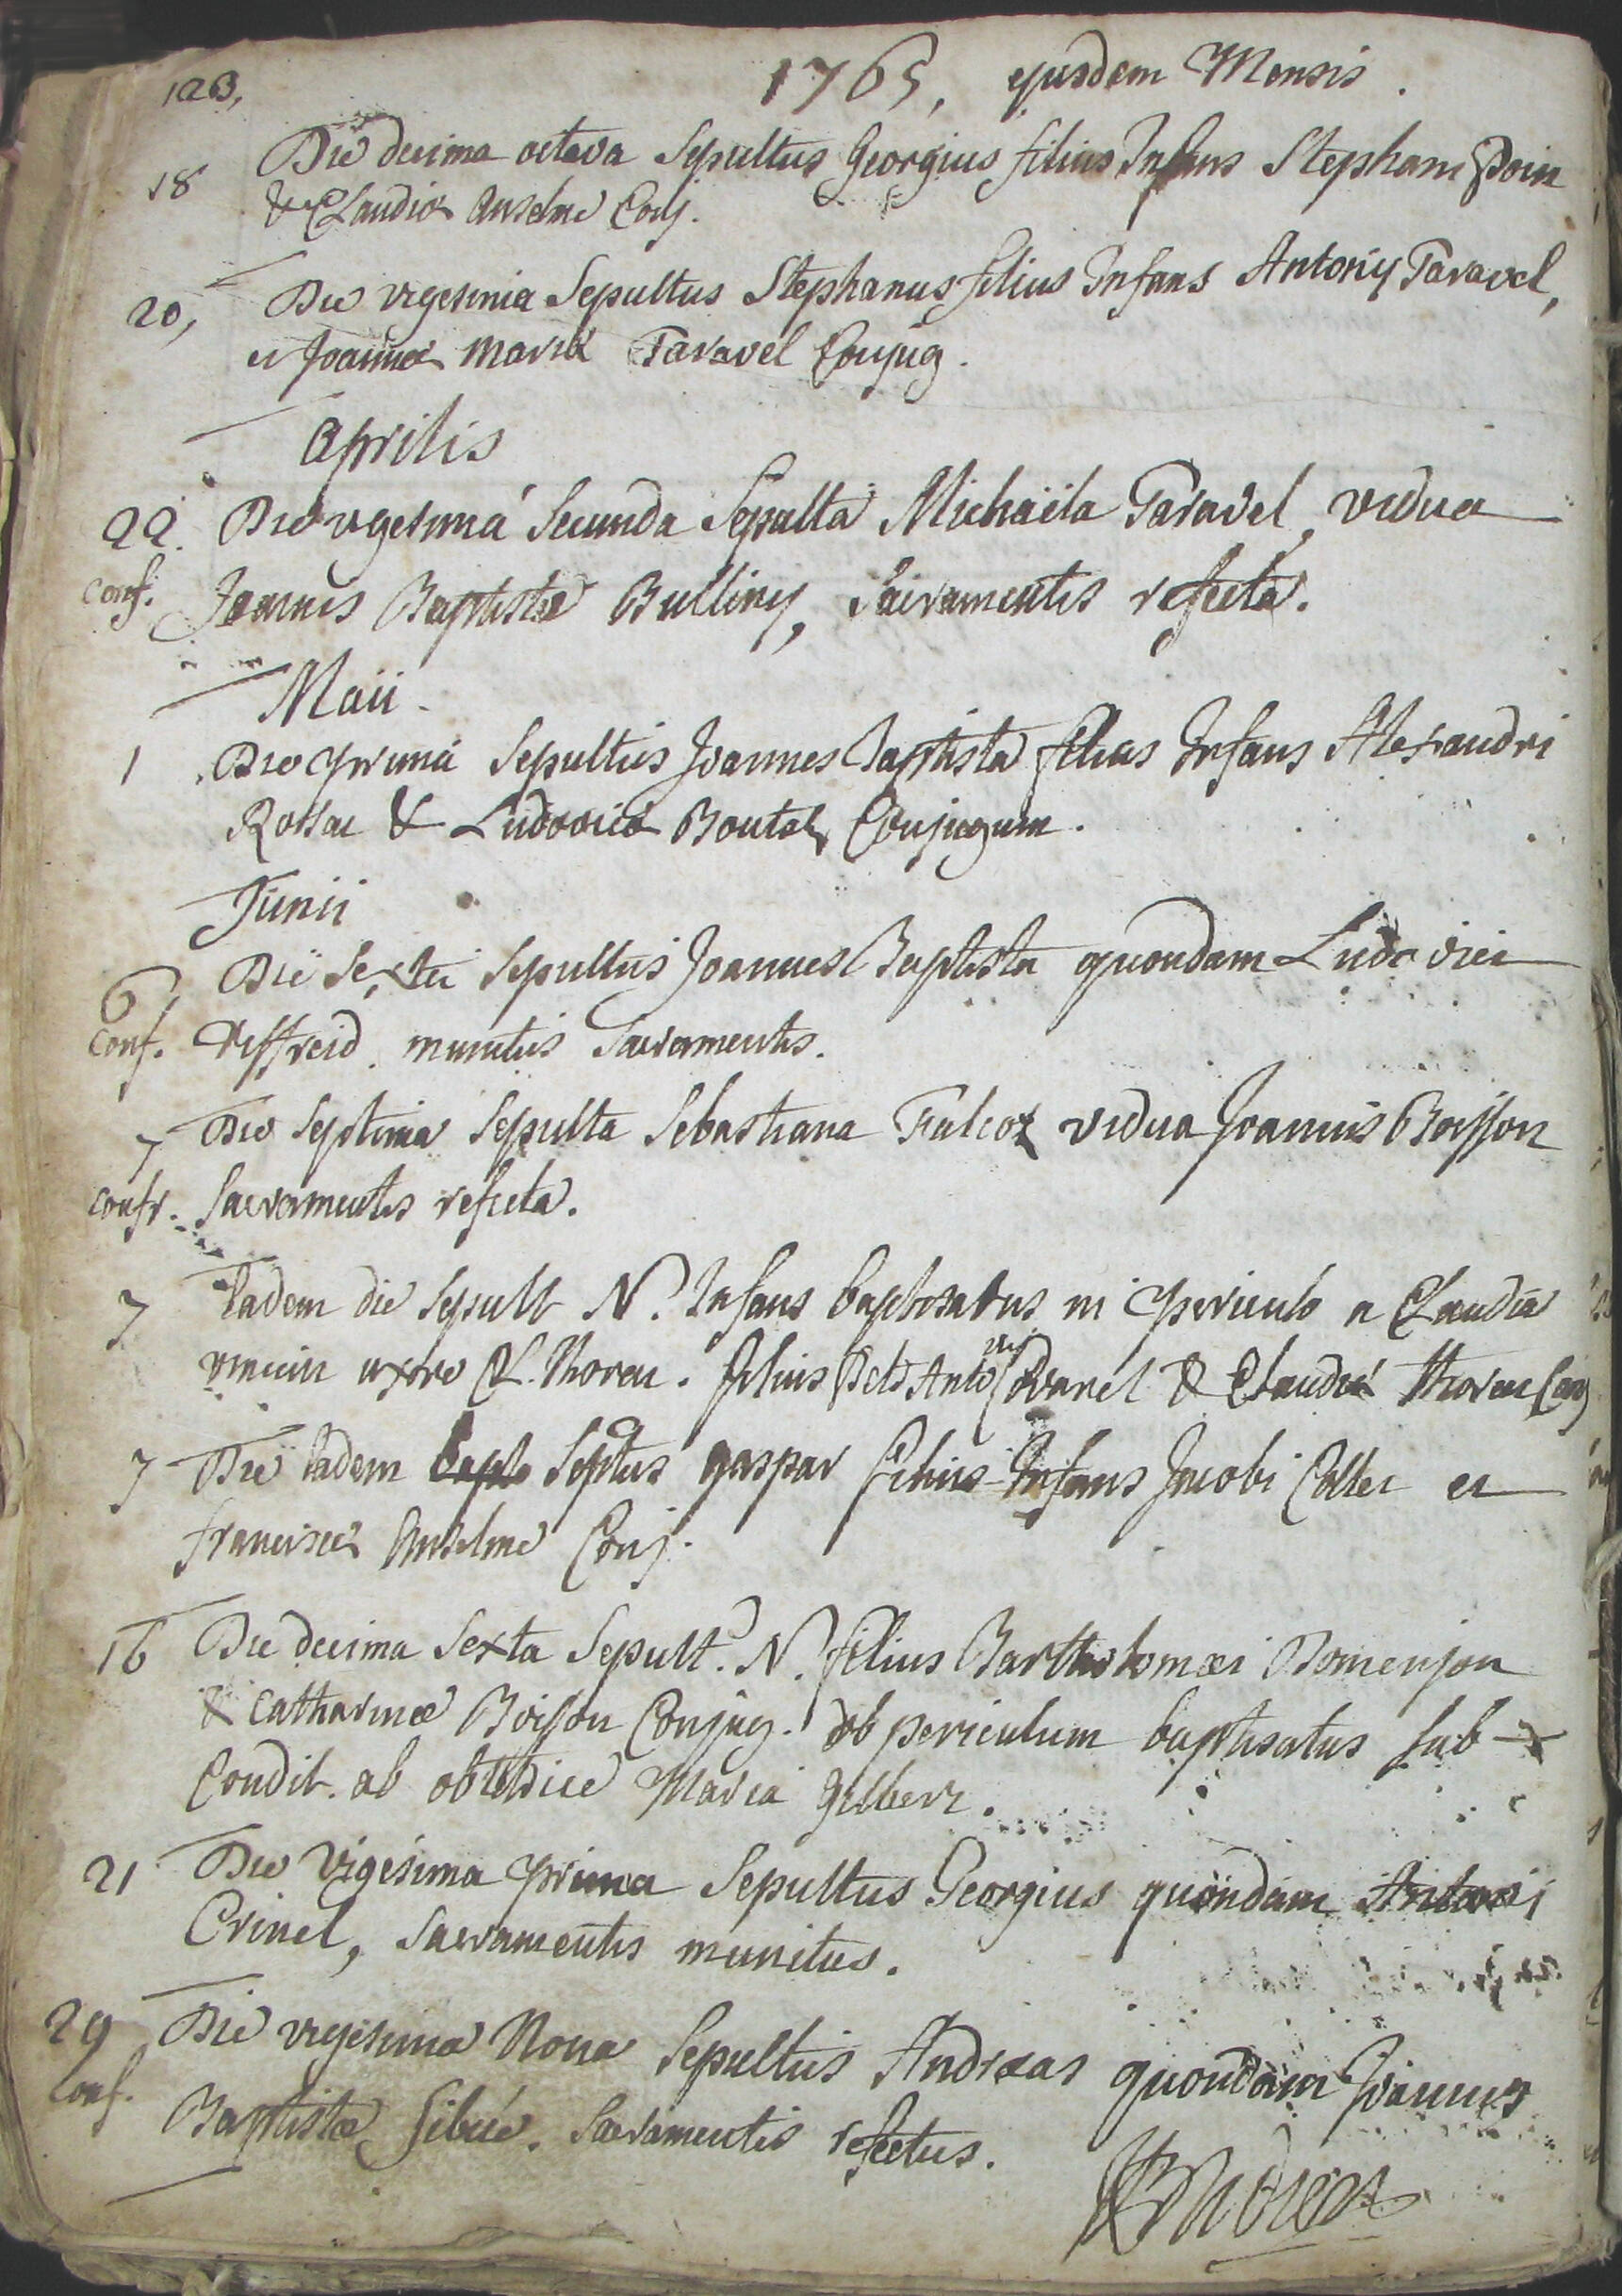 123,
1765, ejusdem Mensis.
18 Die decima octava Sepultus Georgius filius Infans Stephani Doin
& Claudiæ Anselme Conj.
20, Die vigesima Sepultus Stephanus filius Infans Antonij Taravel,
et Joannæ Mariæ Taravel Conjug.
Aprilis
22. Die vigesimá Secunda Sepulta Michaëla Taravel, vidua
conf. Joannis Baptistæ Bulliny, Sacramentis refecta.
Maii.
1 Die primá Sepultus Joannes Baptista filius Infans Alexandri
& Ludovicæ Boutal Conjugum.
Junii
6, Die Sexta Sepultus Joannes Baptista quondam Ludovici
Conf. munitus Sacramentis.
7 Die Septima Sepulta Sebastiana Falcoz vidua Joannis Boisson
confr. Sacramentis refecta.
7 Eadem die Sepult N. Infans baptisatus in periculo a Claudia
uxore Cl. Thoren. filius & Claudiæ Thoren Conj
7 Die Eadem Septus gaspar filius Infans Jacobi Collet et
franciscæ Anselme Conj.
16 Die decima Sexta Sepult. N. filius Bartholomæi Domenjon
& Catharinæ Boisson Conjug. ob periculum baptisatus sub
Condit. ab obstetrice Maria gilbert.
21 Die Vigesima prima Sepultus Georgius quondam Antonii
Crinel, Sacramentis munitus.
29 Die vigesima Nona Sepultus Andreas quondam Joannis
Conf. Baptistæ Sibué. Sacramentis refectus.